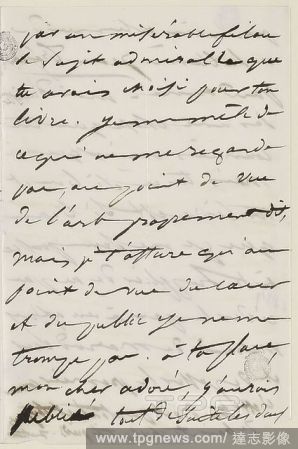 par un misérable filou
le sujet admirable que
tu avais choisi pour ton
livre. je me mêle de
ce qui ne me regarde
pas, au point de vue
de l'art proprement dit,
mais je t'assure qu'au
point de vue du cœur
et du public je ne me
trompe pas. à ta place,
mon cher adoré, j'aurais
publié tout de suite les
www.tpgnews.com / 達志影像